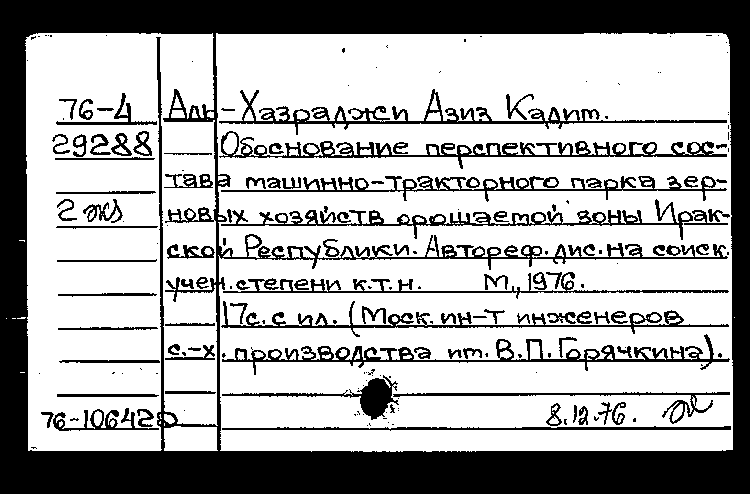 76-4 Аль-Хазраджи Азиз Кадит.
29288 Обоснование перспективного сос-
тава машинно-тракторного парка зер-
2 экз новых хозяйств орошаемой зоны Ирак-
ской Республики. Автореф. дис. на соиск.
учен. степени к.т.н. М., 1976.
17с. с ил. (Моск. ин-т инженеров
с.-х. производства им. В.П. Горячкина).
76-106420 8.12.76.